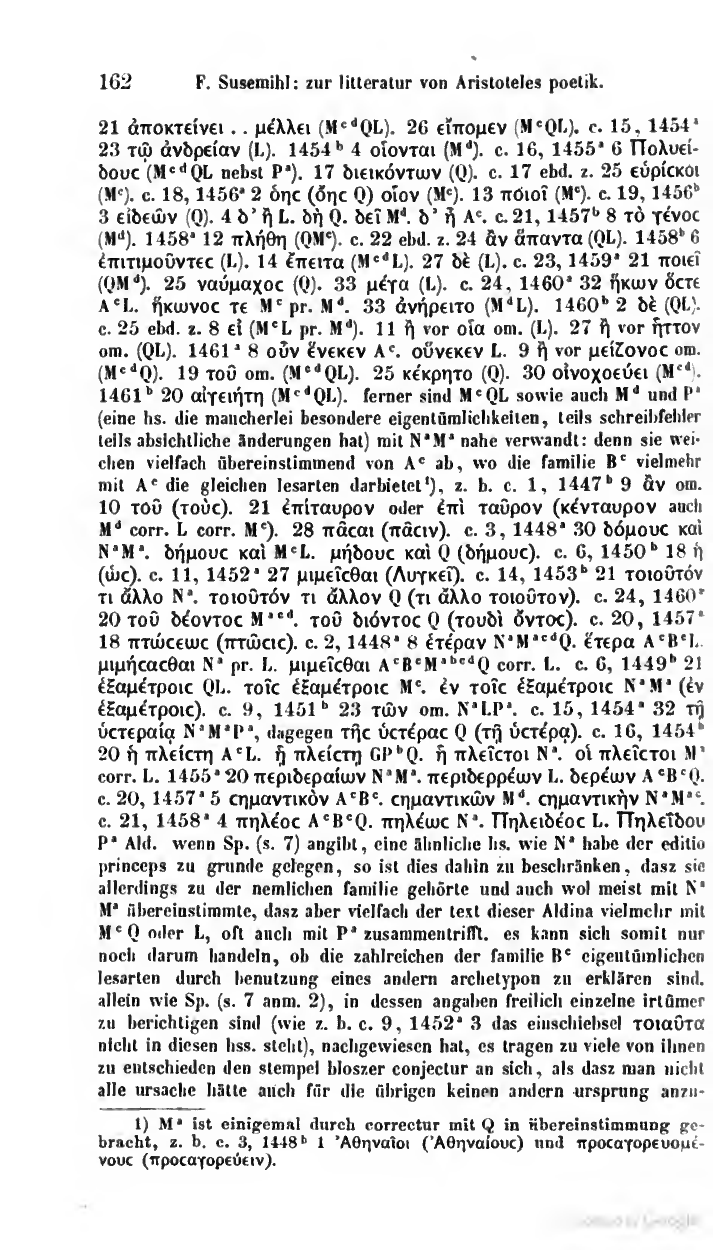 162 F. Susemihl: zur litteratur von Aristoteles poetik.
21 ἀποκτείνει . . μέλλει (Mᶜᵈ QL). 26 εἴπομεν (MᶜQL). c. 15, 1454ᵃ
23 τῷ ἀνδρείαν (L). 1454ᵇ 4 οἴονται (Mᵈ). c. 16, 1455ᵃ 6 Πολυεί-
δους (Mᶜᵈ QL nebst Pᵃ). 17 διεικόντων (Q). c. 17 ebd. z. 25 εὑρίσκοι
(Mᶜ). c. 18, 1456ᵃ 2 ὁης (ὅης Q) οἷον (Mᶜ). 13 ποιοῖ (Mᶜ). c. 19, 1456ᵇ
3 εἰδεῶν (Q). 4 δ’ ᾖ L. δὴ Q. δεῖ Mᵈ. δ’ ἢ Aᶜ. c. 21, 1457ᵇ 8 τὸ γένος
(Mᵈ). 1458ᵃ 12 πλήθη (QMᶜ). c. 22 ebd. z. 24 ἂν ἅπαντα (QL). 1458ᵇ 6
ἐπιτιμοῦντες (L). 14 ἔπειτα (Mᶜᵈ L). 27 δὲ (L). c. 23, 1459ᵃ 21 ποιεῖ
(QMᵈ). 25 ναύμαχος (Q). 33 μέγα (L). c. 24, 1460ᵃ 32 ἥκων ὅςτε
AᶜL. ἥκωνος τε Mᶜ pr. Mᵈ. 33 ἀνήρειτο (MᵈL). 1460ᵇ 2 δὲ (QL).
c. 25 ebd. z. 8 εἰ (MᶜL pr. Mᵈ). 11 ἢ vor οἷα om. (L). 27 ἢ vor ἧττον
om. (QL). 1461ᵃ 8 οὖν ἕνεκεν Aᶜ. οὕνεκεν L. 9 ἢ vor μείζονος om.
(Mᶜᵈ Q). 19 τοῦ om. (Mᶜᵈ QL). 25 κέκρητο (Q). 30 οἰνοχοεύει (Mᶜᵈ).
1461ᵇ 20 αἰγειήτη (Mᶜᵈ QL). ferner sind MᶜQL sowie auch Mᵈ und Pᵃ
(eine hs. die mancherlei besondere eigentümlichkeiten, teils schreibfehler
teils absichtliche änderungen hat) mit NᵃMᵃ nahe verwandt: denn sie wei-
chen vielfach übereinstimmend von Aᶜ ab, wo die familie Bᶜ vielmehr
mit Aᶜ die gleichen lesarten darbietet¹), z. b. c. 1, 1447ᵇ 9 ἂν om.
10 τοῦ (τοὺς). 21 ἐπίταυρον oder ἐπὶ ταῦρον (κένταυρον auch
Mᵈ corr. L corr. Mᶜ). 28 πᾶσαι (πᾶσιν). c. 3, 1448ᵃ 30 δόμους καὶ
NᵃMᵃ. δήμους καὶ MᶜL. μήδους καὶ Q (δήμους). c. 6, 1450ᵇ 18 ἢ
(ὡς). c. 11, 1452ᵃ 27 μιμεῖσθαι (Λυγκεῖ). c. 14, 1453ᵇ 21 τοιοῦτόν
τι ἄλλο Nᵃ. τοιοῦτόν τι ἄλλον Q (τι ἄλλο τοιοῦτον). c. 24, 1460ᵃ
20 τοῦ δέοντος Mᵃᶜᵈ. τοῦ διόντος Q (τουδὶ ὄντος). c. 20, 1457ᵃ
18 πτώσεως (πτῶσις). c. 2, 1448ᵃ 8 ἑτέραν NᵃMᵃᶜᵈ Q. ἕτερα AᶜBᶜL.
μιμήσασθαι Nᵃ pr. L. μιμεῖσθαι AᶜBᶜMᵃᵇᶜᵈ Q corr. L. c. 6, 1449ᵇ 21
ἑξαμέτροις QL. τοῖς ἑξαμέτροις Mᶜ. ἐν τοῖς ἑξαμέτροις NᵃMᵃ (ἐν
ἑξαμέτροις). c. 9, 1451ᵇ 23 τῶν om. NᵃLPᵃ. c. 15, 1454ᵃ 32 τῇ
ὑστεραία NᵃMᵃPᵃ, dagegen τῆς ὑστέρας Q (τῇ ὑστέρᾳ). c. 16, 1454ᵇ
20 ἡ πλείστη AᶜL. ᾗ πλείστῃ GPᵇQ. ἢ πλεῖστοι Nᵃ. οἱ πλεῖστοι Mᵃ
corr. L. 1455ᵃ 20 περιδεραίων NᵃMᵃ. περιδερρέων L. δερέων AᶜBᶜQ.
c. 20, 1457ᵃ 5 σημαντικὸν AᶜBᶜ. σημαντικῶν Mᵈ. σημαντικὴν NᵃMᵃᶜ.
c. 21, 1458ᵃ 4 πηλέος AᶜBᶜQ. πηλέως Nᵃ. Πηλειδέος L. Πηλεΐδου
Pᵃ Ald. wenn Sp. (s. 7) angibt, eine ähnliche hs. wie Nᵃ habe der editio
princeps zu grunde gelegen, so ist dies dahin zu beschränken, dasz sie
allerdings zu der nemlichen familie gehörte und auch wol meist mit Nᵃ
Mᵃ übereinstimmte, dasz aber vielfach der text dieser Aldina vielmehr mit
MᶜQ oder L, oft auch mit Pᵃ zusammentrifft. es kann sich somit nur
noch darum handeln, ob die zahlreichen der familie Bᶜ eigentümlichen
lesarten durch benutzung eines andern archetypon zu erklären sind.
allein wie Sp. (s. 7 anm. 2), in dessen angaben freilich einzelne irtümer
zu berichtigen sind (wie z. b. c. 9, 1452ᵃ 3 das einschiebsel τοιαῦτα
nicht in diesen hss. steht), nachgewiesen hat, es tragen zu viele von ihnen
zu entschieden den stempel bloszer conjectur an sich, als dasz man nicht
alle ursache hätte auch für die übrigen keinen andern ursprung anzu-
1) Mᵃ ist einigemal durch correctur mit Q in übereinstimmung ge-
bracht, z. b. c. 3, 1448ᵇ 1 Ἀθηναῖοι (Ἀθηναίους) und προσαγορευομέ-
νους (προσαγορεύειν).